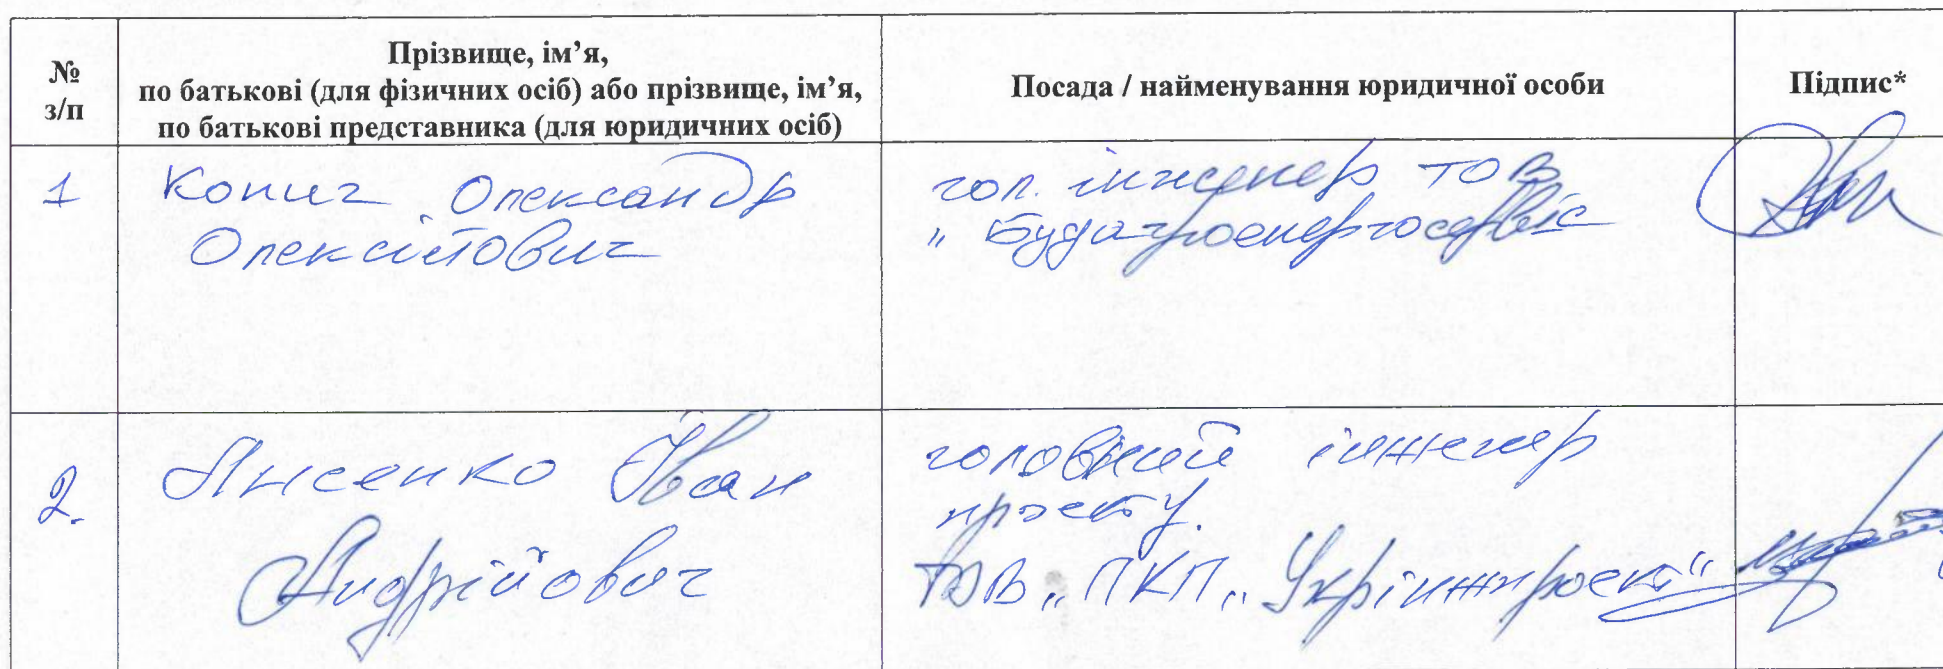 №
з/п
Прізвище, ім’я,
по батькові (для фізичних осіб) або прізвище, ім’я,
по батькові представника (для юридичних осіб)
Посада / найменування юридичної особи
Підпис*
1
Копич Олександр
Олексійович
гол. інженер ТОВ
"Будагроенергосервіс
2.
Лисенко Іван
Андрійович
головний інженер
проекту.
ТОВ „ПКП „Укрінжпроект"